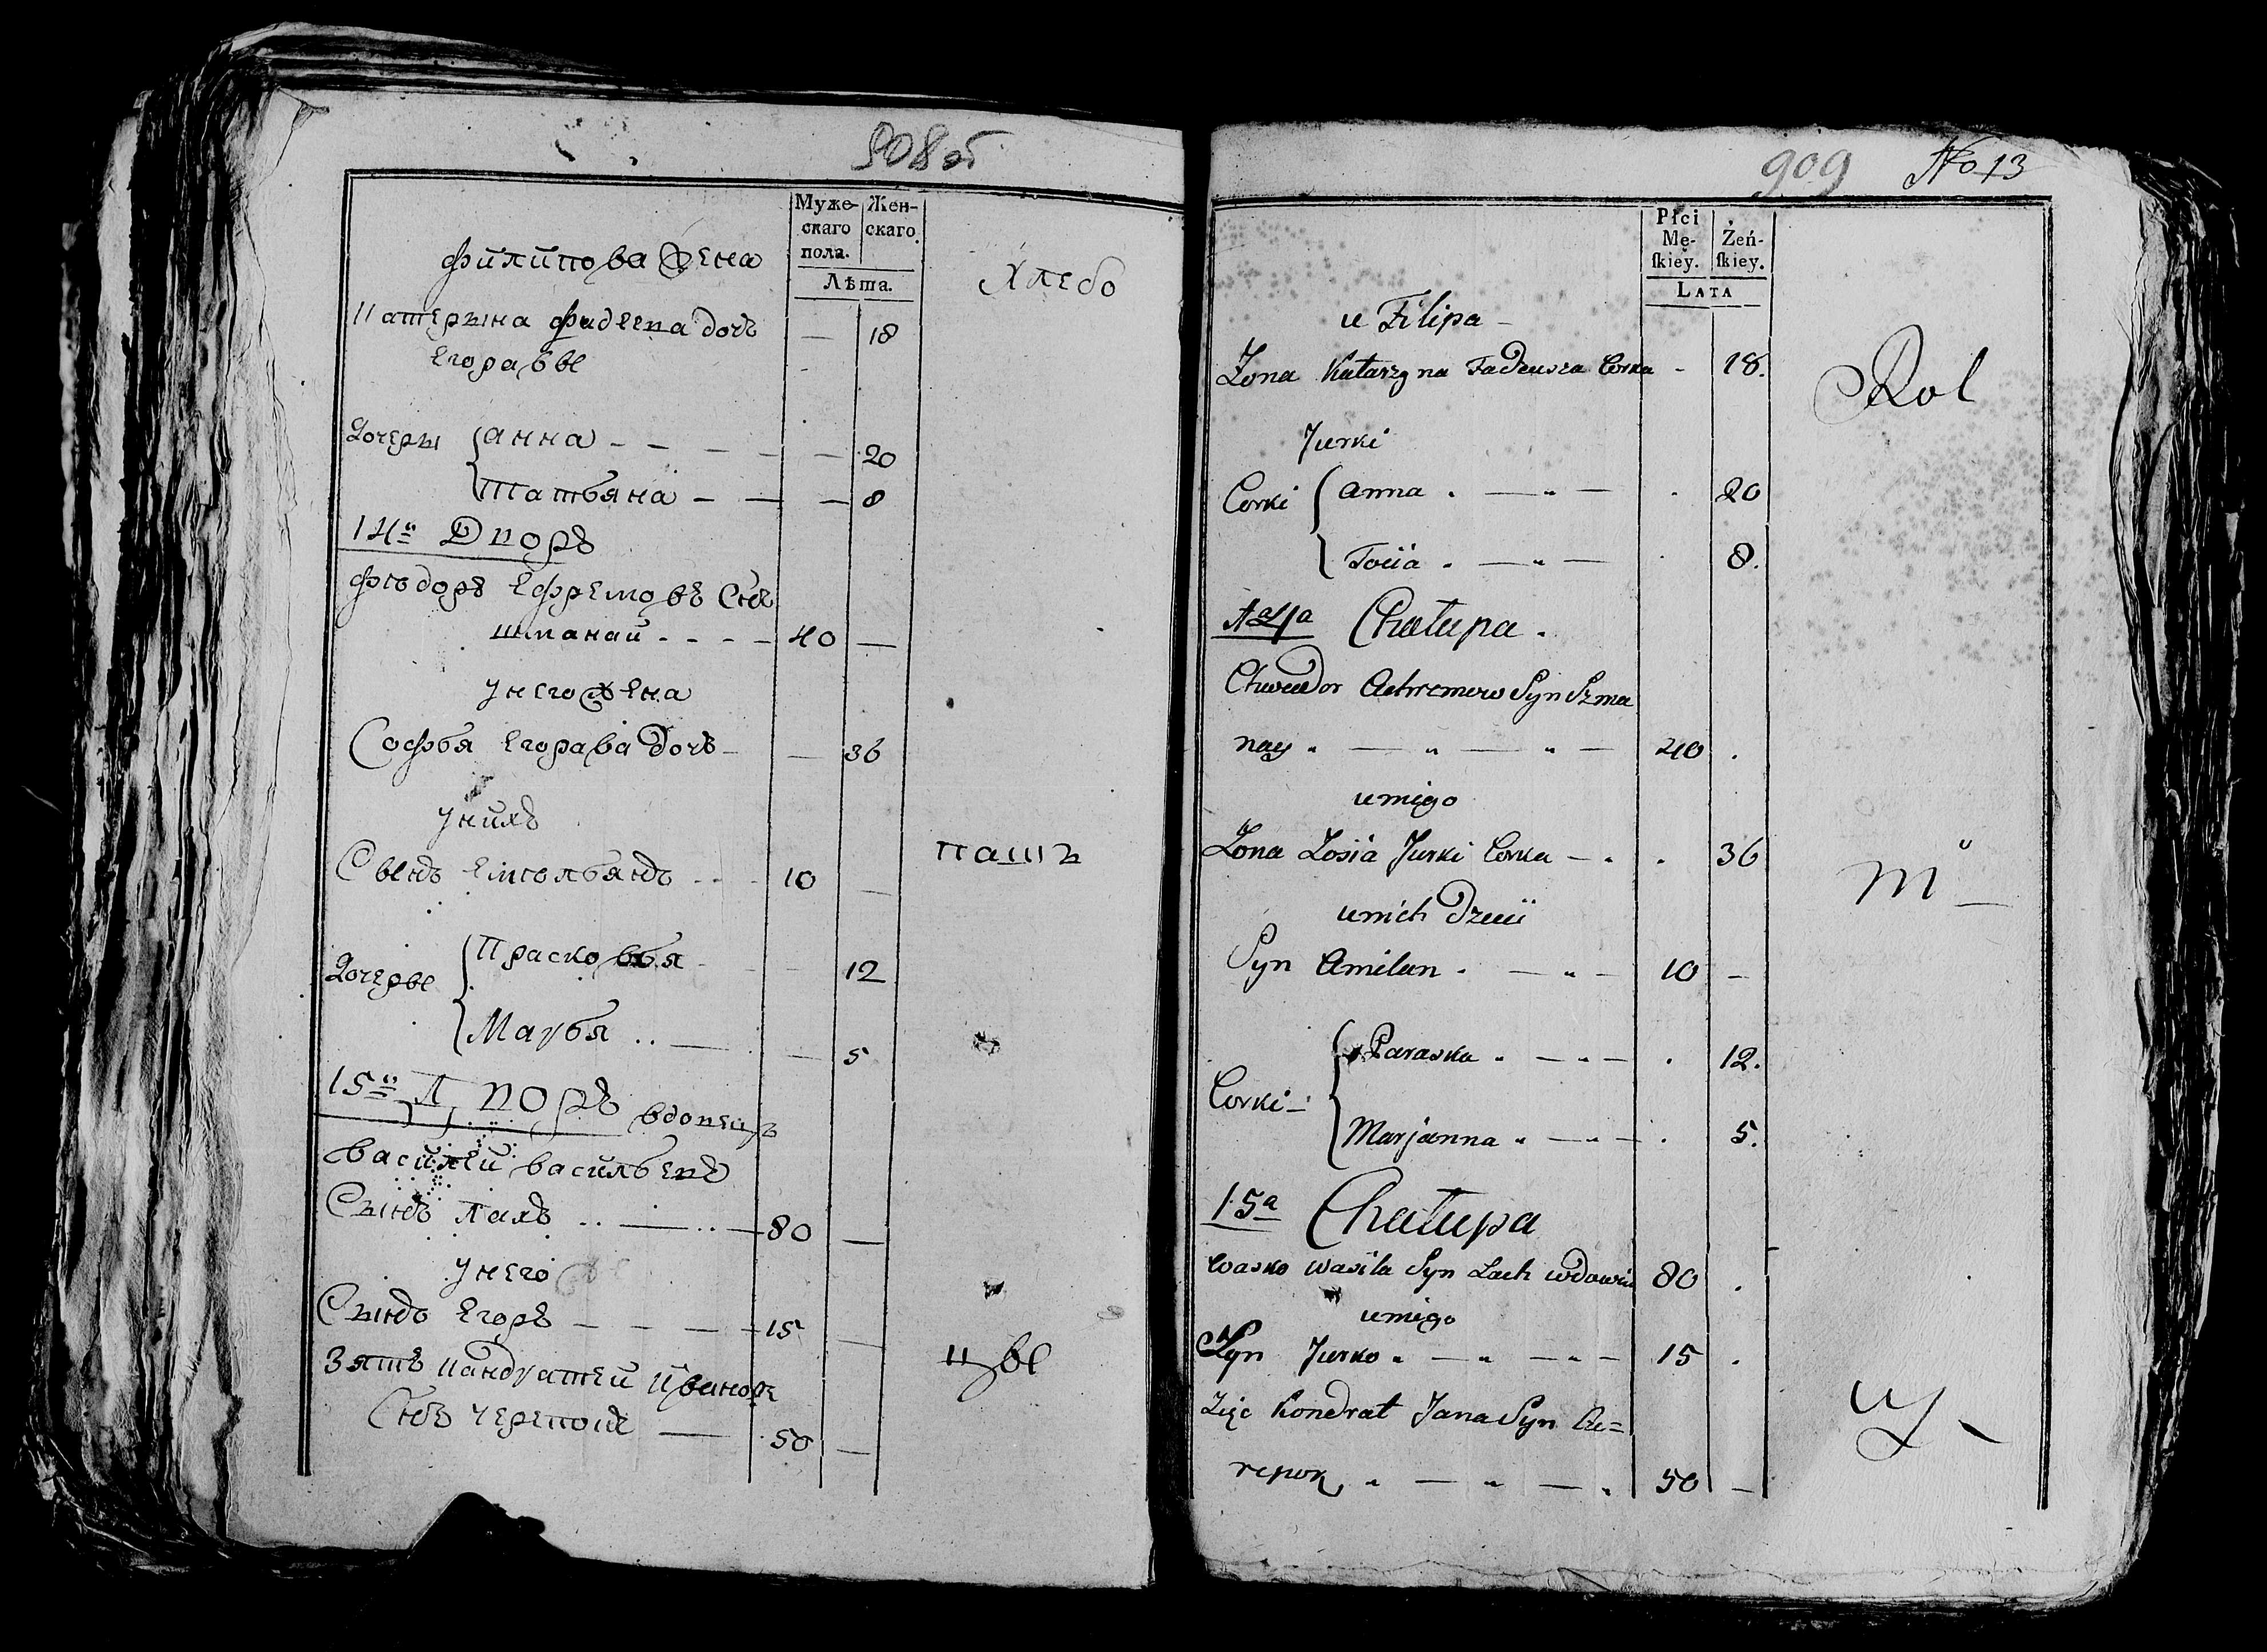 908об
Муже- Жен-
скаго скаго.
пола.
Лѣта.
филипова жена
Хлебо
Катерына фадеева дочь — 18
Егоравы
Дочеры { анна — — — — — 20
{ татьяна — — — 8
14й Дворъ
фѣдоръ Ефремовъ Снъ
шманай - - - - 40 —
у него жена
Софья Егорава дочь — — 36
у нихъ
паш
Сынъ Емѣльянъ - - - 10 —
Дочеры { Прасковья - — 12
{ Марья .. — — 5
15й Дворъ вдовецъ
василей васильевъ
Сынъ лахъ .. — .. — 80 —
у него
Сынъ Егоръ — — — — 15 —
цы
Зять кандратей иванов
Снъ черепок — 50 —
909 No 13
Płci
Mę- Żeń-
ſkiey. ſkiey.
LATA
u Filipa —
Żona Katarzyna Tadeusza Corka - 18.
Rol
Jurki
Corki { anna . — „ — . 20
{ Tocia . — „ — . 8.
14a Chałupa .
Chwedor Achremow Syn Szma
nay „ — „ — „ — 40 .
u niego
Żona Zosia Jurki Corka — . . 36
ni
u nich Dzieci
Syn Amilan . — „ — 10 —
Corki — { Paraska „ — „ — . 12.
{ Marjanna „ — „ — . 5.
15a Chałupa
Wasko Wasila Syn Lach wdowiec 80 .
u niego
Syn Jurko „ — „ — „ — 15 .
Zięc Kondrat Jana Syn Cze=
repok „ — „ — „ 50 —
cy -